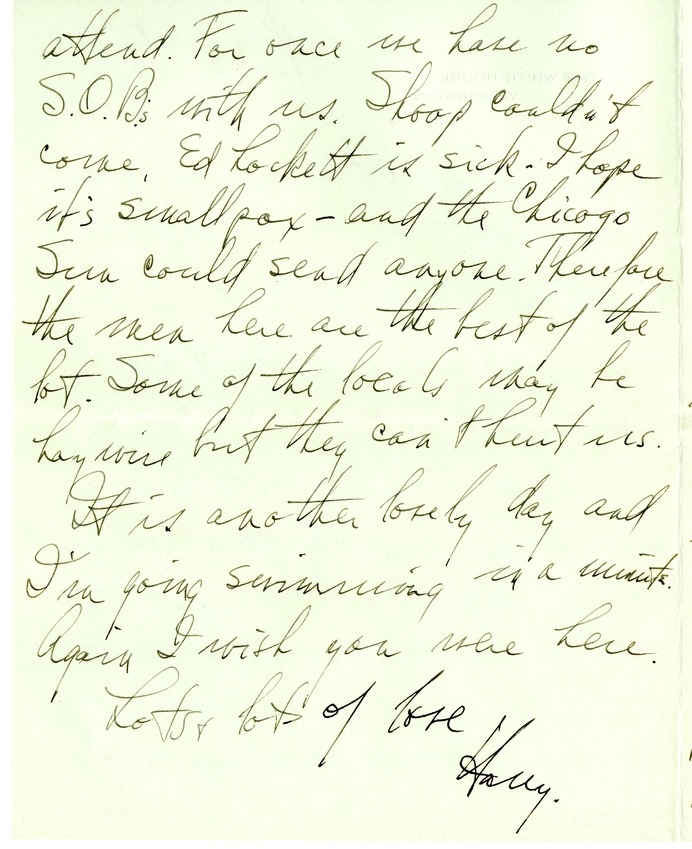 attend. For once we have no
S.O.B's with us. Shoop couldn't
come, Ed Lockett is sick. I hope
it's smallpox - and the Chicago
Sun could send anyone. Therefore
the men here are the best of the
lot. Some of the locals may be
haywire but they can't hurt us.
It is another lovely day and
I'm going swimming in a minute.
Again I wish you were here.
Lots & lots of love
Harry.